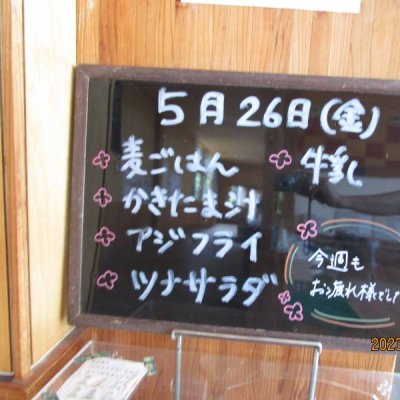 5月26日(金)
麦ごはん
牛乳
かきたま汁
アジフライ
ツナサラダ
今週も
お疲れ様でし